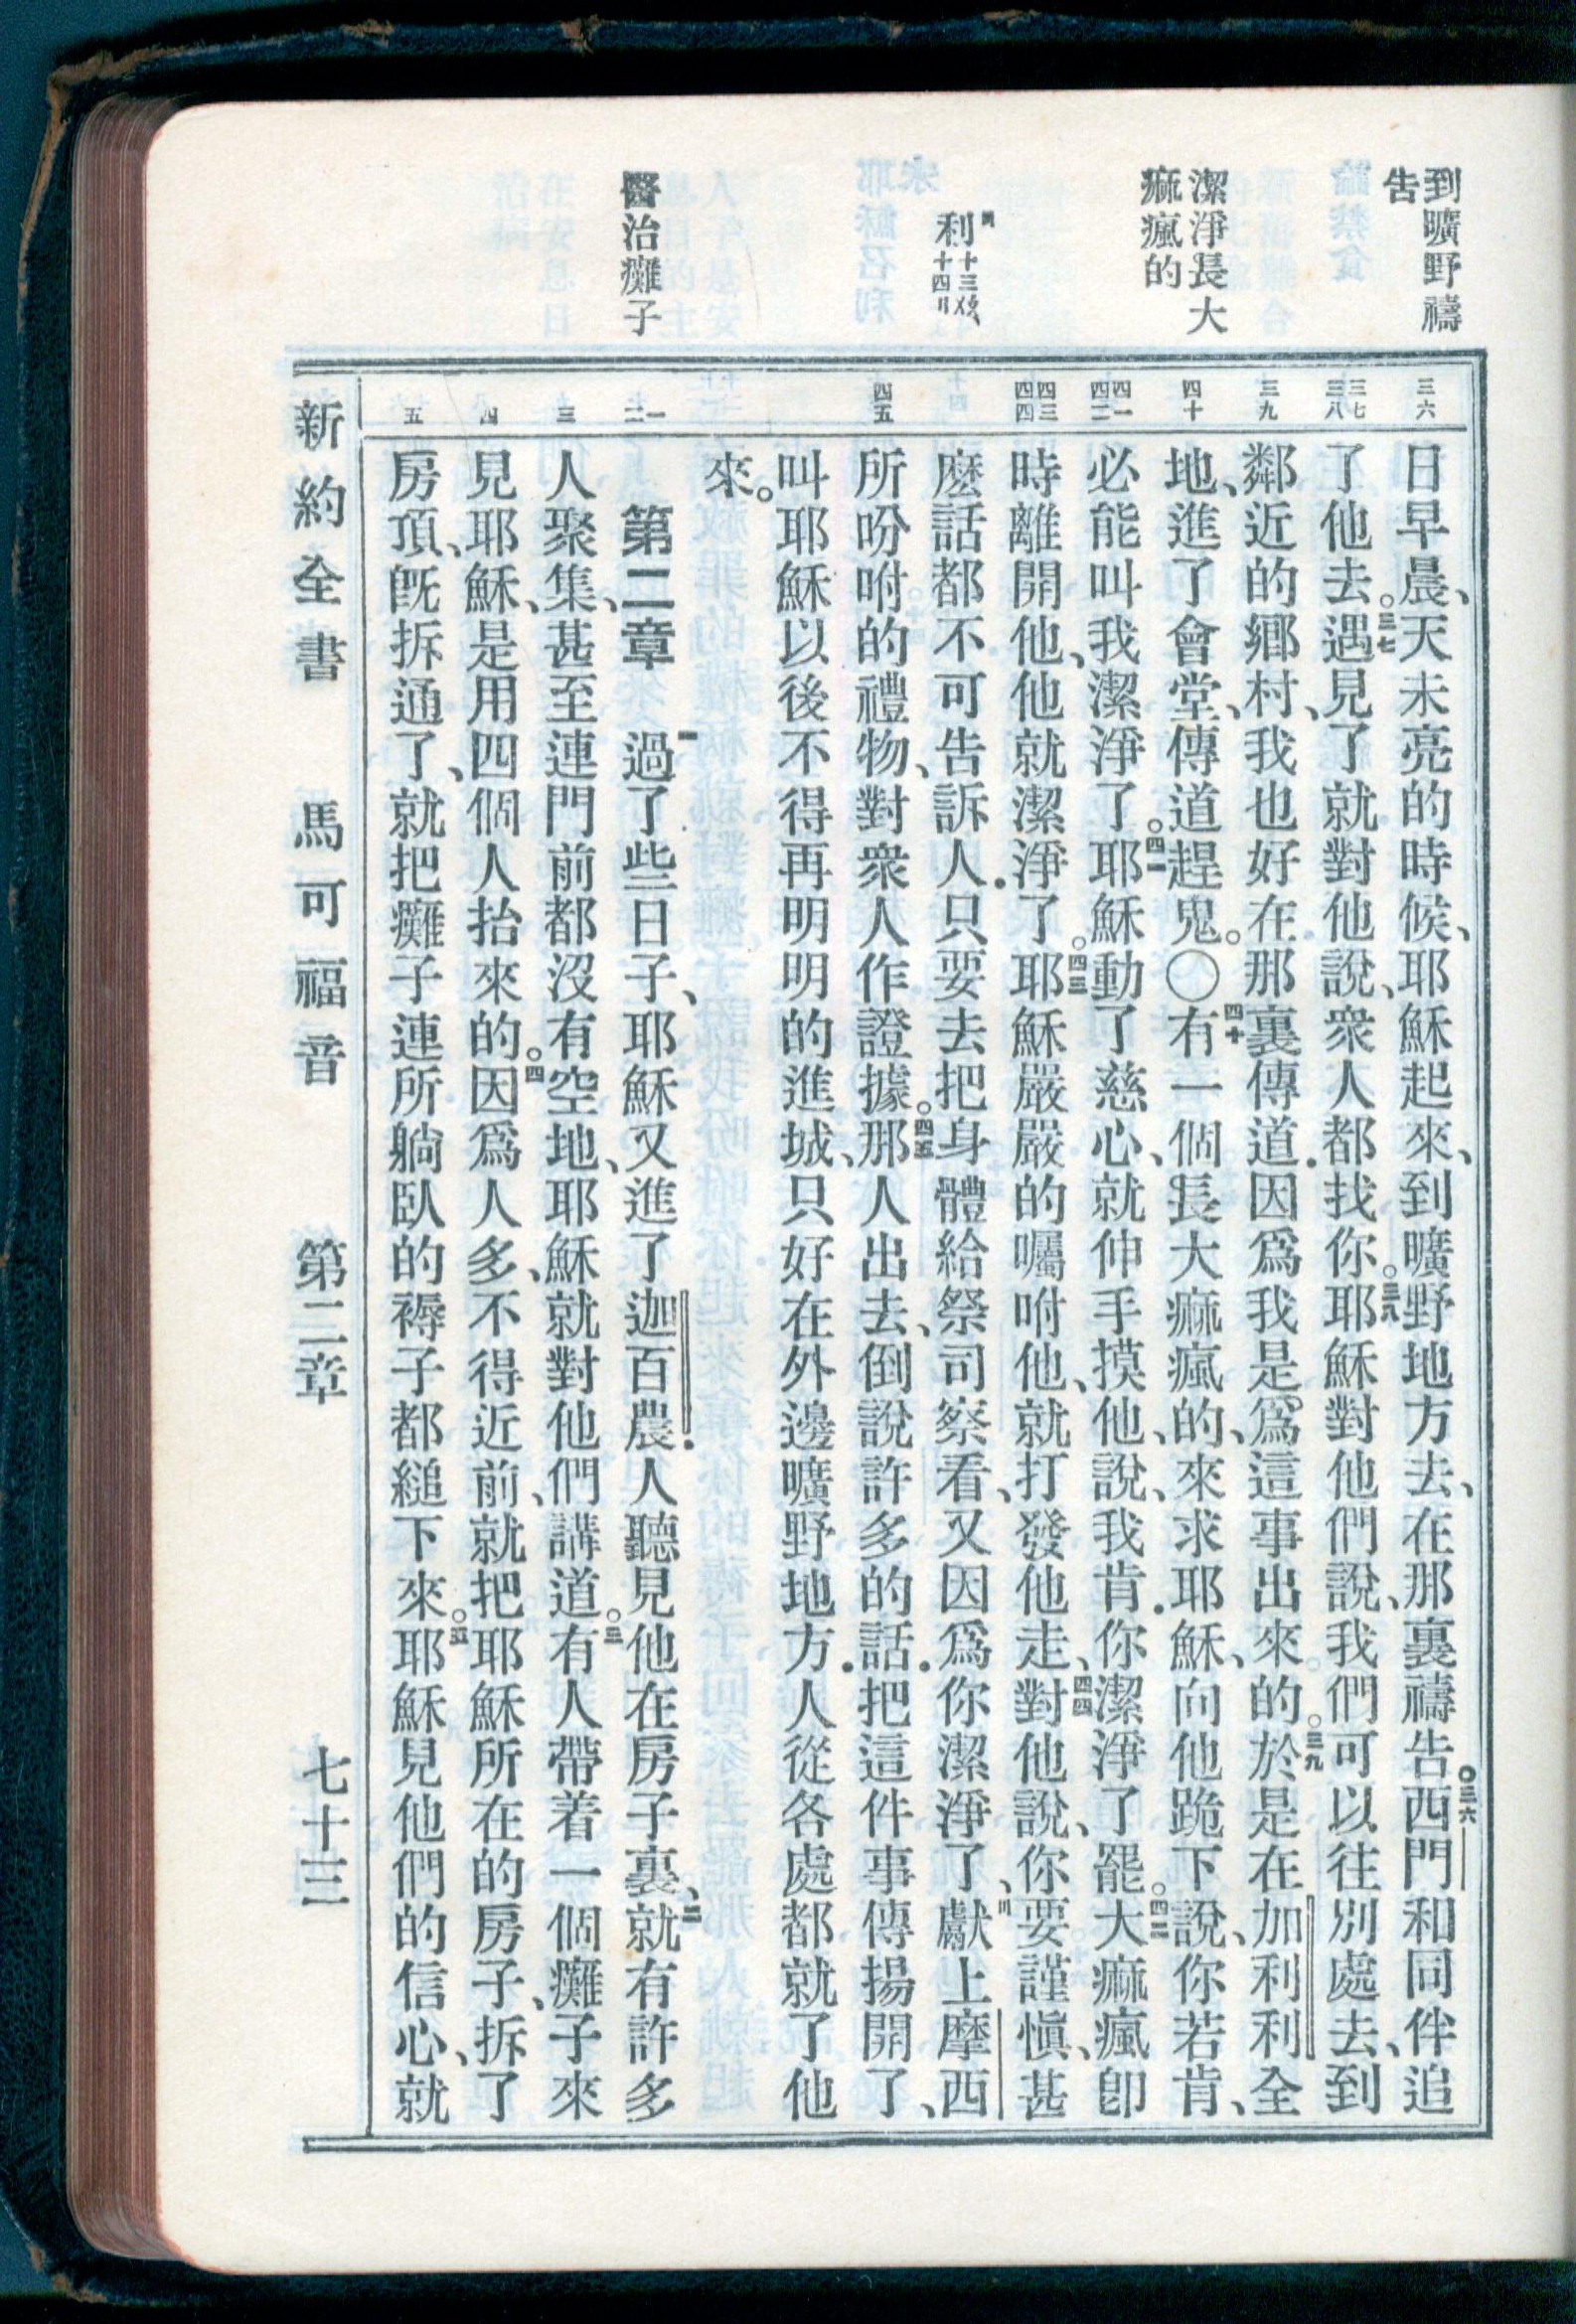 到曠野禱
告
潔淨長大
痲瘋的
利十三
十四
醫治癱子
三六
三七
三八
三九
四十
四一
四二
四三
四四
四五
一
二
三
四
五
日早晨、天未亮的時候、耶穌起來、到曠野地方去、在那裏禱告。三六西門和同伴追
了他去。三七遇見了就對他說、衆人都找你。三八耶穌對他們說、我們可以往別處去、到
鄰近的鄉村、我也好在那裏傳道.因爲我是爲這事出來的。三九於是在加利利全
地、進了會堂、傳道趕鬼。〇四十有一個長大痲瘋的、來求耶穌、向他跪下說、你若肯、
必能叫我潔淨了。四一耶穌動了慈心、就伸手摸他、說、我肯.你潔淨了罷。四二大痲瘋卽
時離開他、他就潔淨了。四三耶穌嚴嚴的囑咐他、就打發他走、四四對他說、你要謹愼、甚
麽話都不可告訴人.只要去把身體給祭司察看、又因爲你潔淨了、獻上摩西
所吩咐的禮物、對衆人作證據。四五那人出去、倒說許多的話.把這件事傳揚開了、
叫耶穌以後不得再明明的進城、只好在外邊曠野地方.人從各處都就了他
來。
第二章 一過了些日子、耶穌又進了迦百農.人聽見他在房子裏、二就有許多
人聚集、甚至連門前都沒有空地、耶穌就對他們講道。三有人帶着一個癱子來
見耶穌、是用四個人抬來的。四因爲人多、不得近前、就把耶穌所在的房子、拆了
房頂、旣拆通了、就把癱子連所躺臥的褥子都縋下來。五耶穌見他們的信心、就
新約全書 馬可福音 第二章 七十三